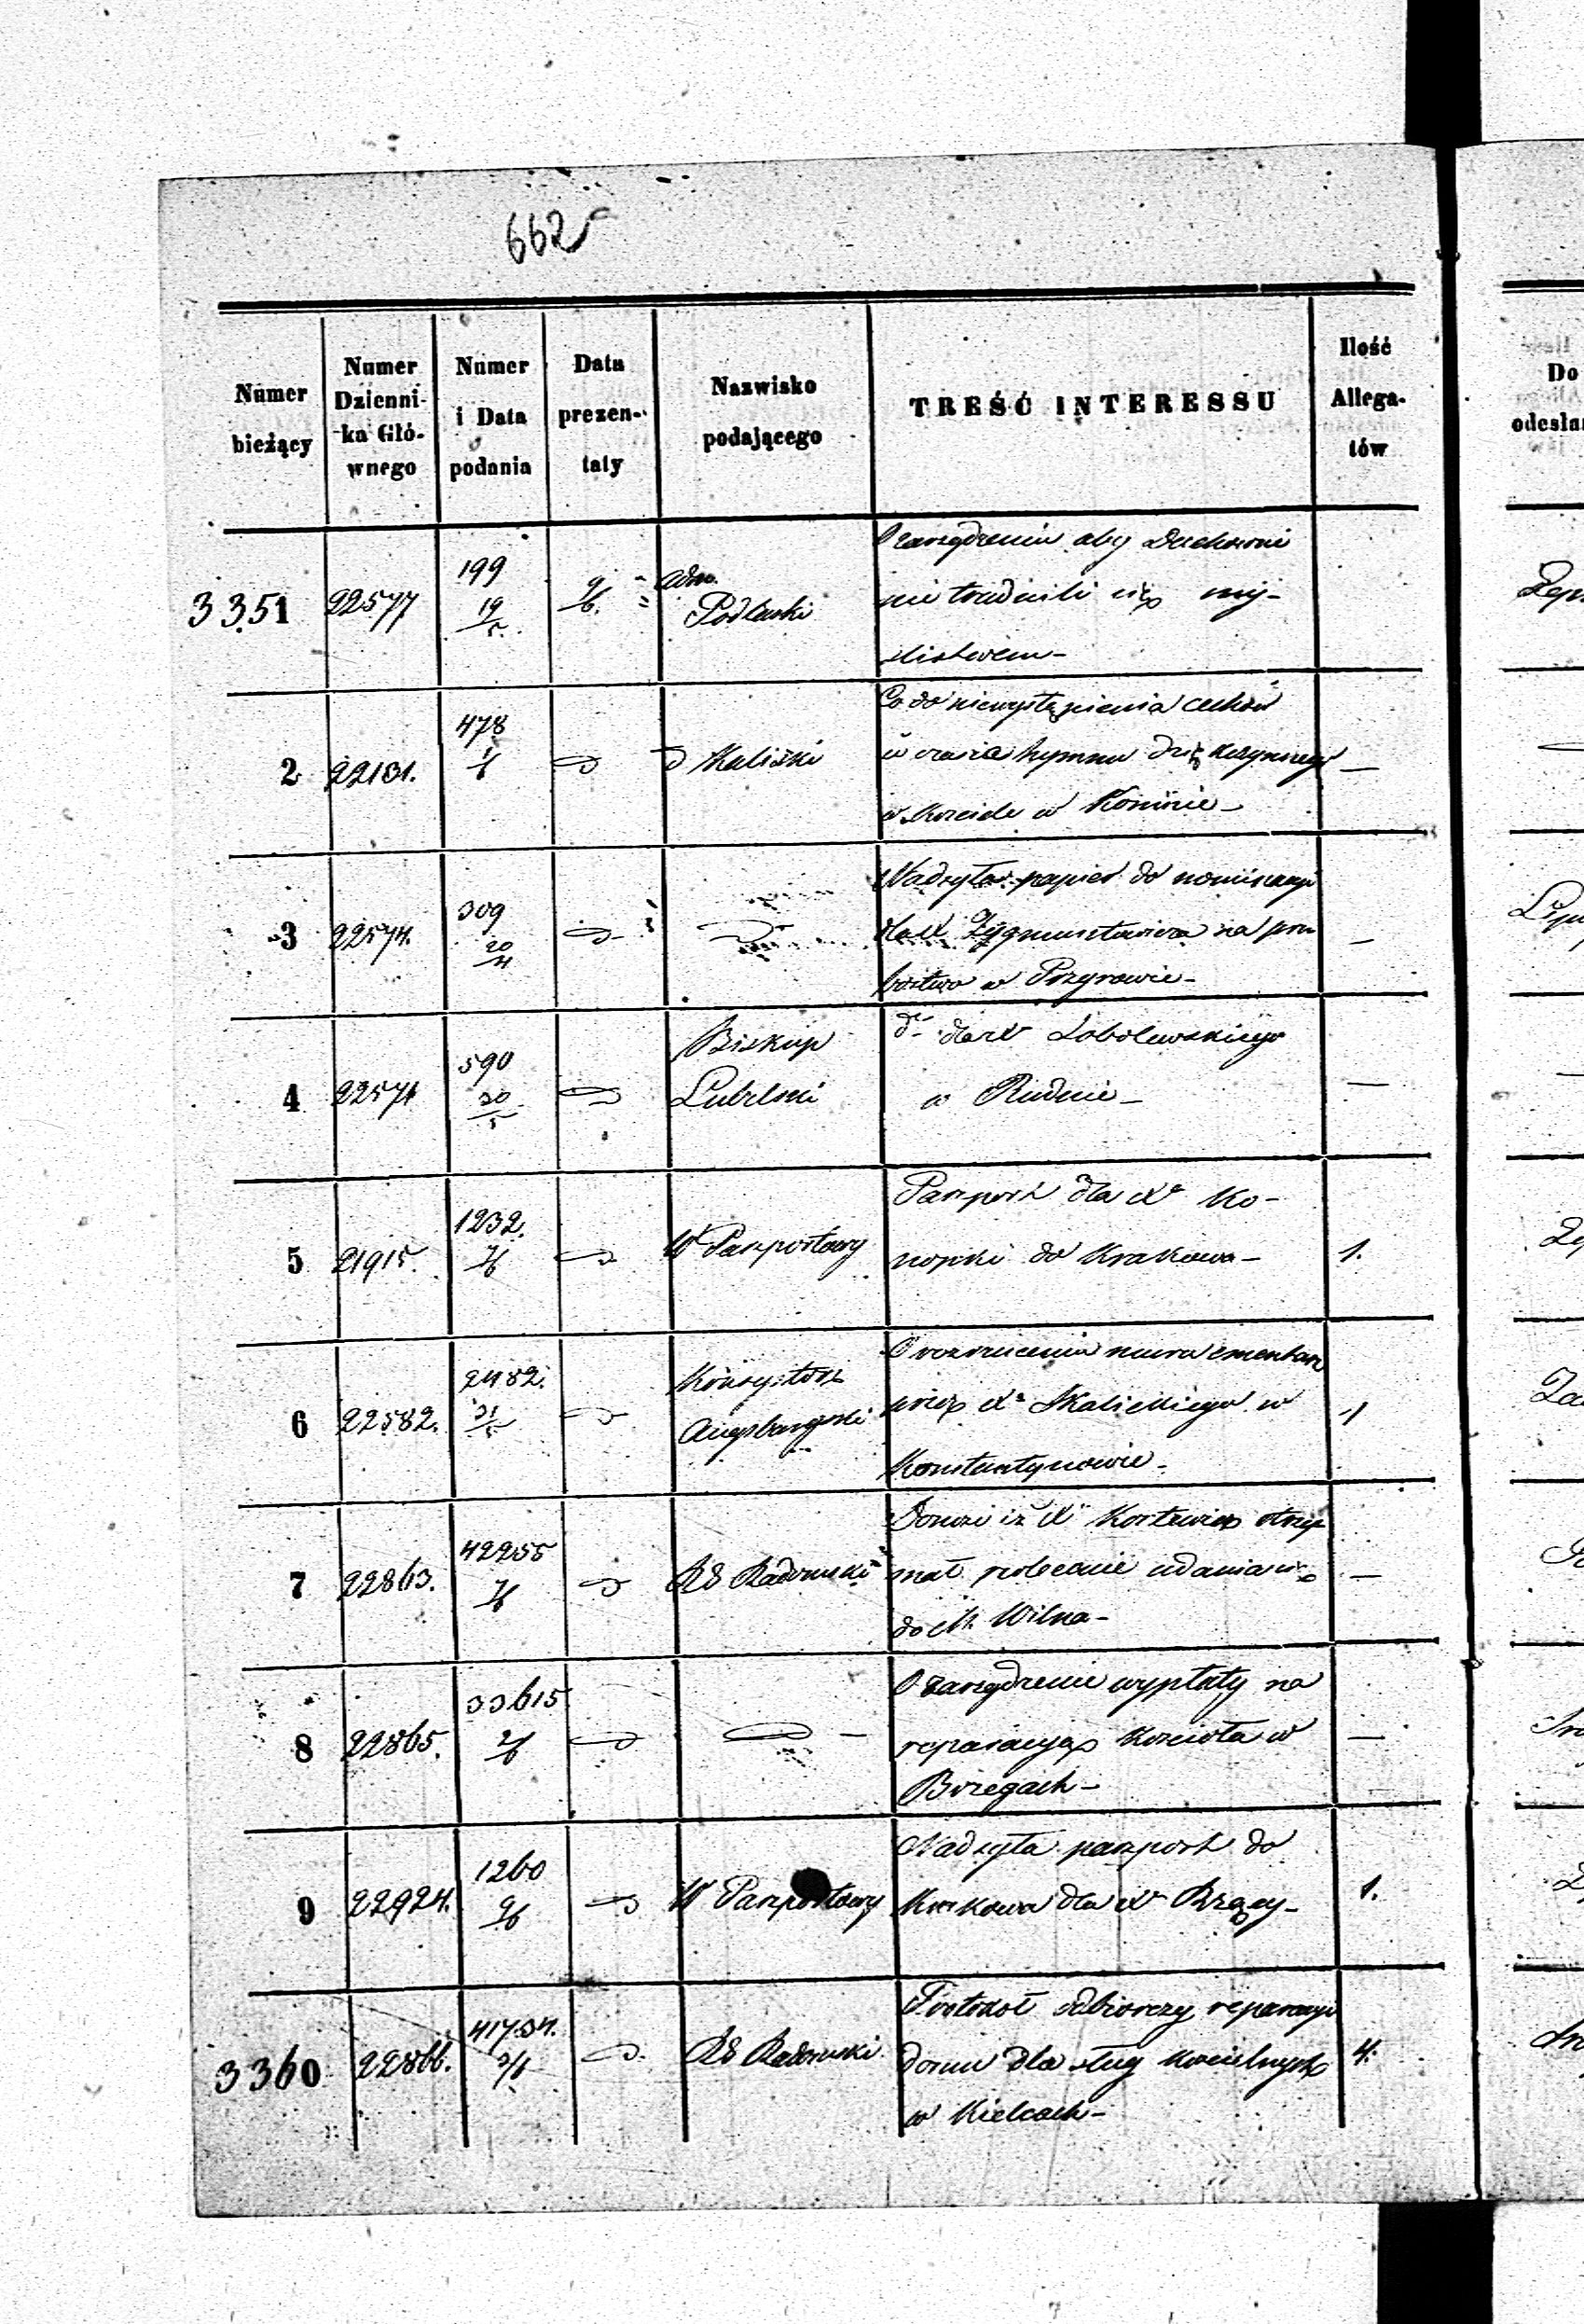 662
Numer bieżący
Numer Dzienni- ka Głó- wnego
Numer i Data podania
Data prezen- taty
Nazwisko podającego
TREŚĆ INTERESSU
Ilość Allega- tów
Do
odesła
3351 22577 199 19/5 9/6 Adm. Podlaski
O zarządzeniu aby Duchowni
nie trudnili się my-
slistwem-
2 22131. 478 1/6 Kaliski
Co do niewystąpienia cechów
w czasie hymnu dziękczynnego —
w kosciele w Koninie-
3 22574. 309 20/4
Nadsyła papier do nominacyi
dla X Zygmuntowicza na pro
bostwo w Przyrowie-
—
4 22571 590 30/5 Biskup Lubelski
do dla X Sobolewskiego
w Rudnie-
—
5 21915. 1232. 7/6 W Paszportowy
Paszport dla Xa Ko-
nopki do Krakowa- 1.
6 22582. 2482. 31/5 Konsystorz Augsburgski
O rozrzucenie muru cmentarz
przez Xa Skalickiego w 1
Konstantynowie-
7 22863. 42255 7/6 RG Radomski
Donosi iż X otrzy
mał polecenie udania się —
do M. Wilna-
8 22865. 33615 2/6 —
O zarządzenie wypłaty na
reparacyą Kosciola w —
Brzegach-
9 22924. 1260 9/6 W Paszportowy
Nadsyła paszport do
Krakowa dla X 1.
3360 22866. 41734. 3/6 RG Radomski
Protokoł odbiorczy reparacyi
domu dla sług koscielnych 4.
w Kielcach-